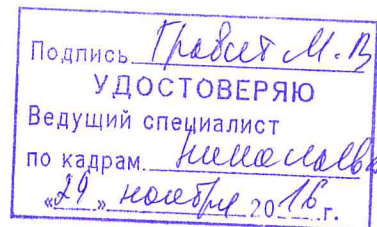 Подпись М.В
УДОСТОВЕРЯЮ
Ведущий специалист
по кадрам
«29» ноября 2016 г.